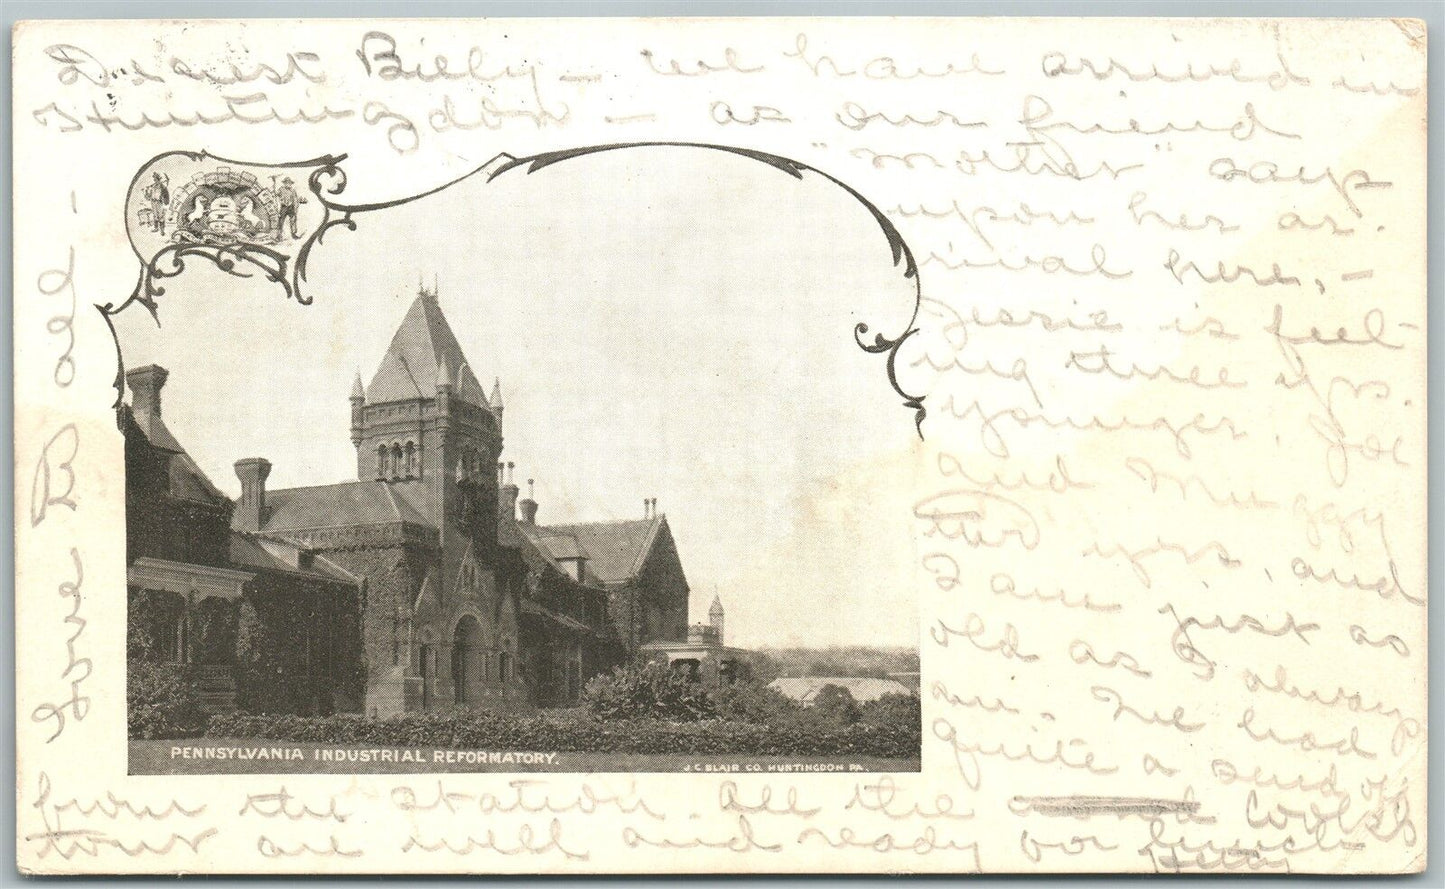 Dearest Billy – we have arrived in
Huntingdon – as our friend
"mother" says
upon her ar-
rival here, –
Jessie is feel-
ing three yrs.
younger, Joe
and Muggy
two yrs, and
I am just as
old as I always
am. We had
quite a send off
from the station. All the Cooks
tour are well and ready for lunch
Hetty
Love B all –
PENNSYLVANIA INDUSTRIAL REFORMATORY.
J.C. BLAIR CO. HUNTINGDON PA.